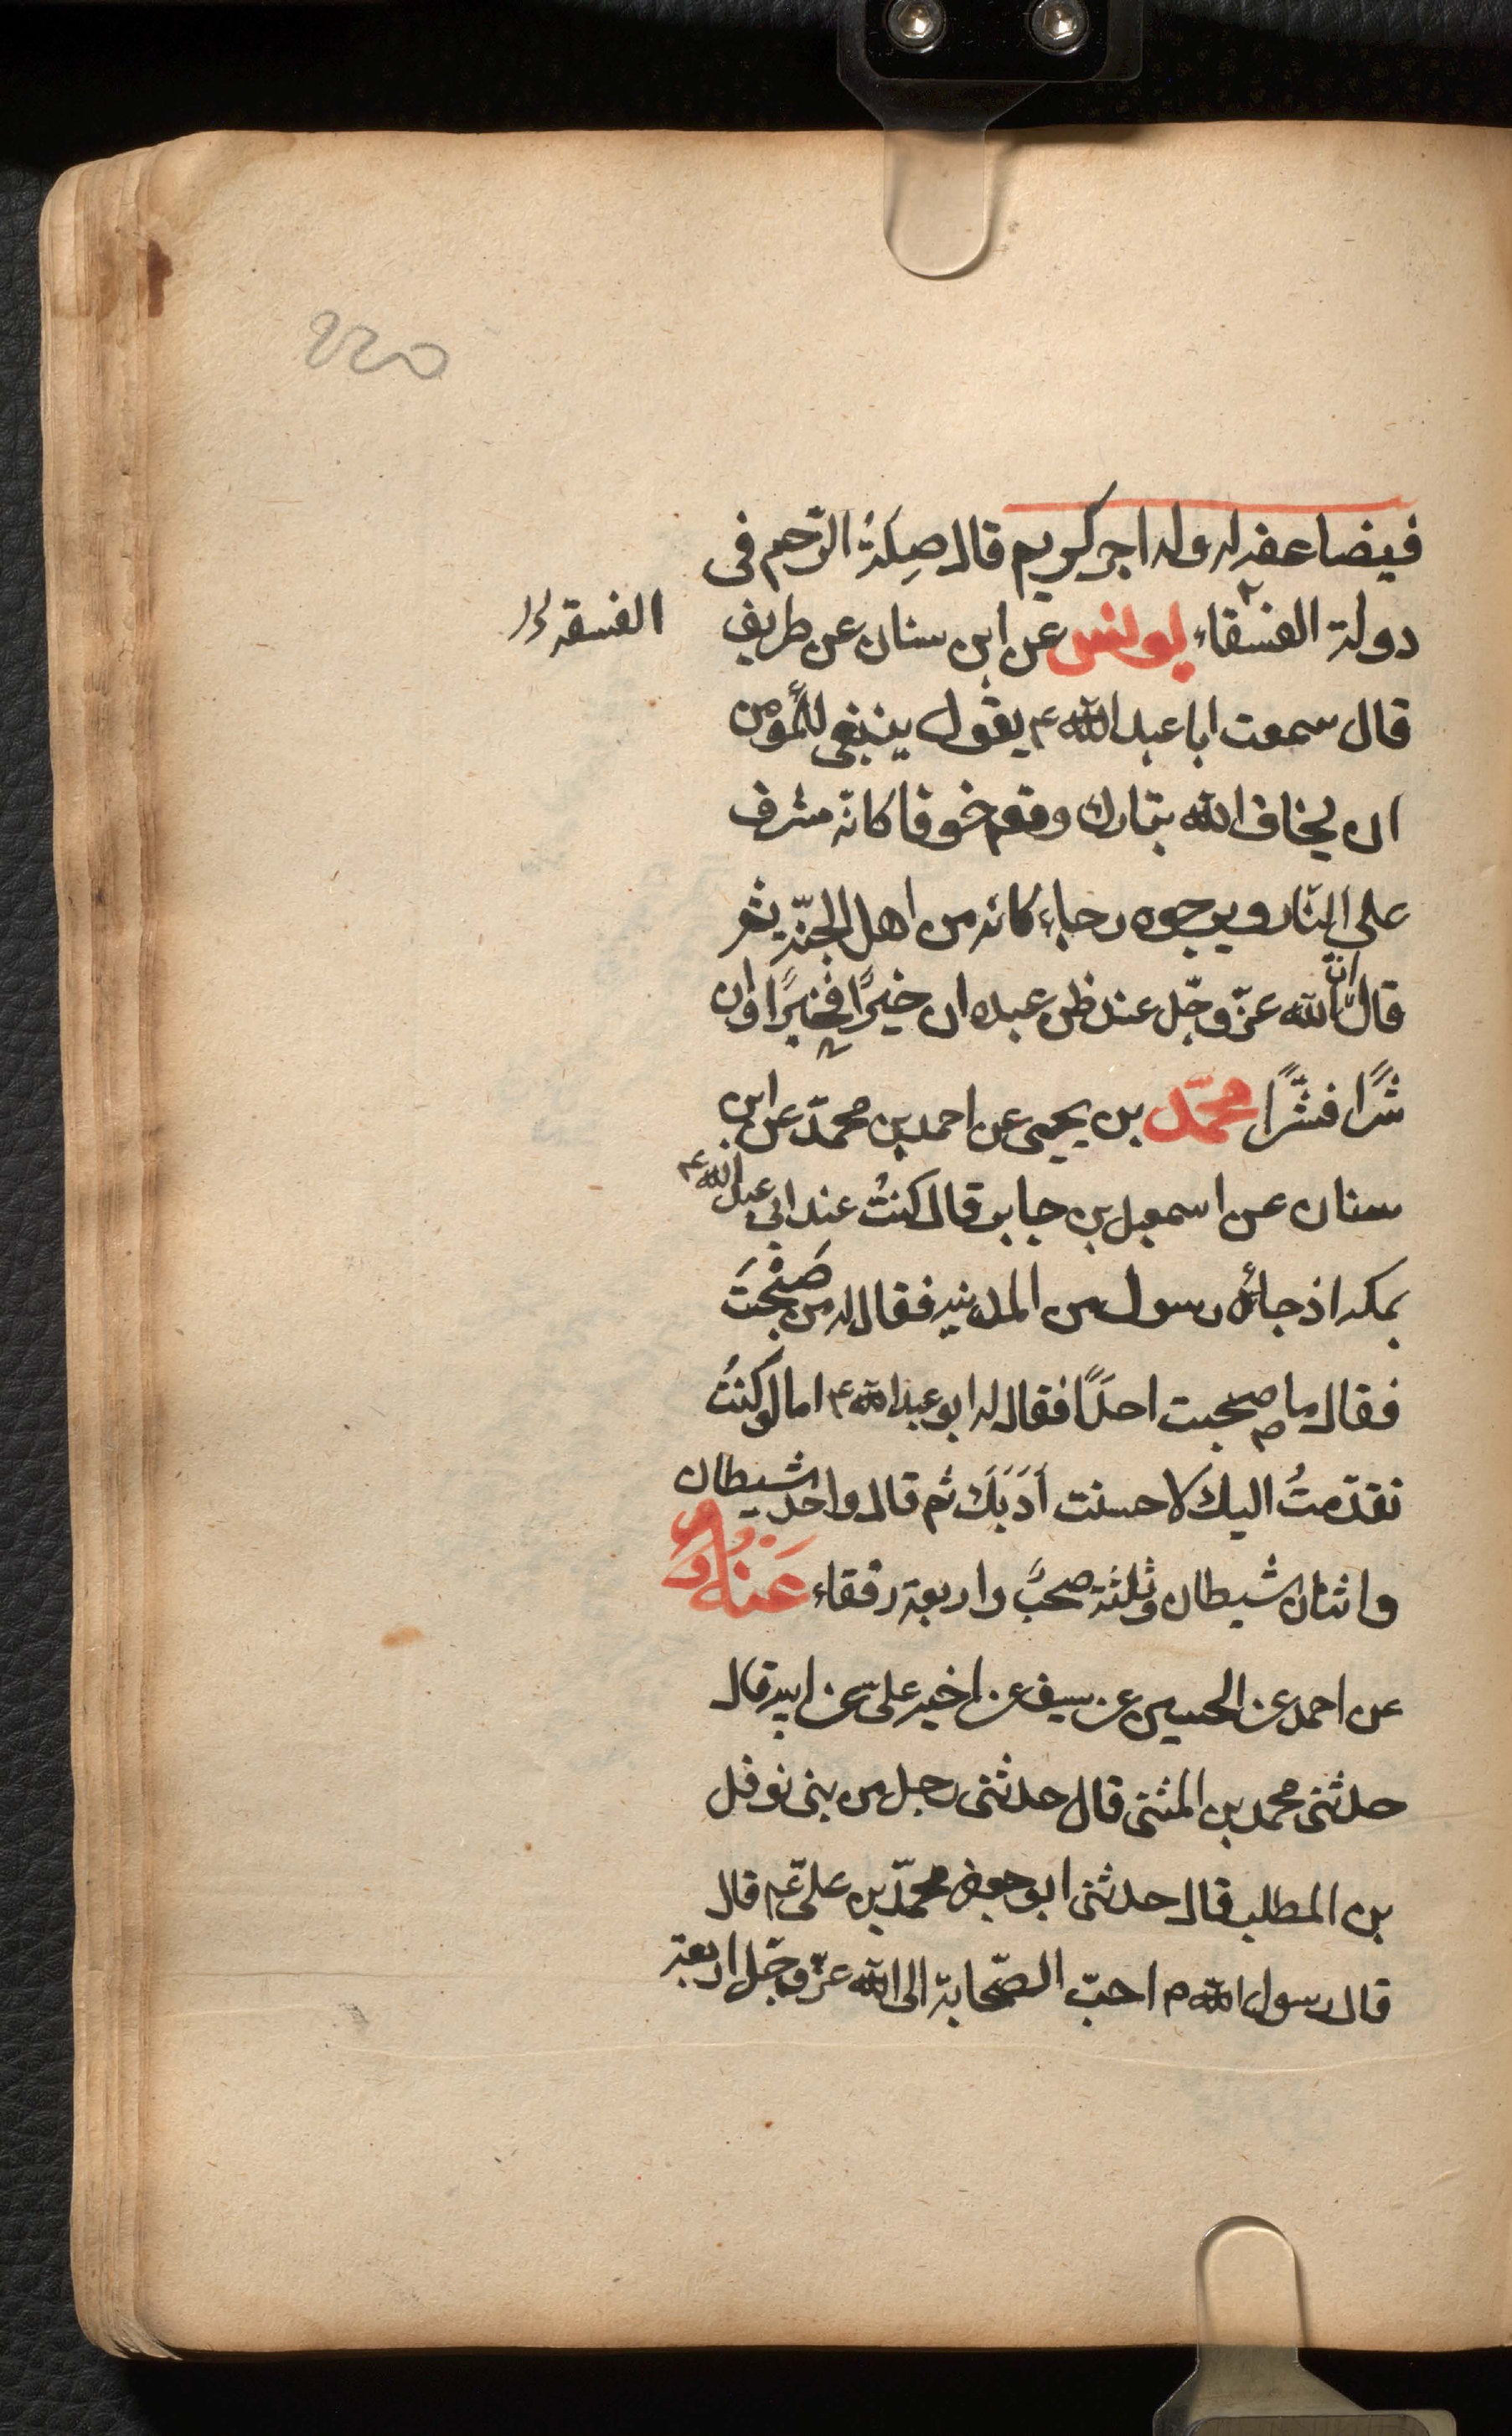 ٢٢٥
فيضاعفه له وله اجر كريم قال صِلَةُ الرّحم فى
دولة الفسقاء يونس عن ابن سنان عن طريف
الفسقة
قال سمعت ابا عبد الله ع يقول ينبغى للمؤمن
ان يخاف الله تبارك وتعم خوفا كانّه مشرف
على النّار ويرجوه رجاء كانه من اهل الجنّة ثم
قال انّ الله عزّ وجّل عند ظن عبده ان خيرًا فخيرًا وان
شرًّا فشرًّا محمّد بن يحيى عن احمد بن محمّد عن ابن
سنان عن اسمعيل بن جابر قال كنتُ عند ابى عبد الله ع
بمكه اذ جائه رسول من المدينه فقال له من صَحِبْتَ
فقال ما صحبت احدًا فقال له ابو عبد الله ع اما لو كنتُ
تقدّمتُ اليك لاحسنت أَدَبَكَ ثم قال واحد شيطان
واثنان شيطان وثلثة صحبٌ واربعة رفقاء عَنْهُ
عن احمد عن الحسين عن سيف عن اخيه علىّ عن ابيه قال
حدثنى محمد بن المثنى قال حدثنى رجل من بنى نوفل
بن المطلب قال حدثنى ابو جعفر محمّد بن علىّ ع قال
قال رسول الله ص احبّ الصّحابة الى الله عزّ وجّل اربعة